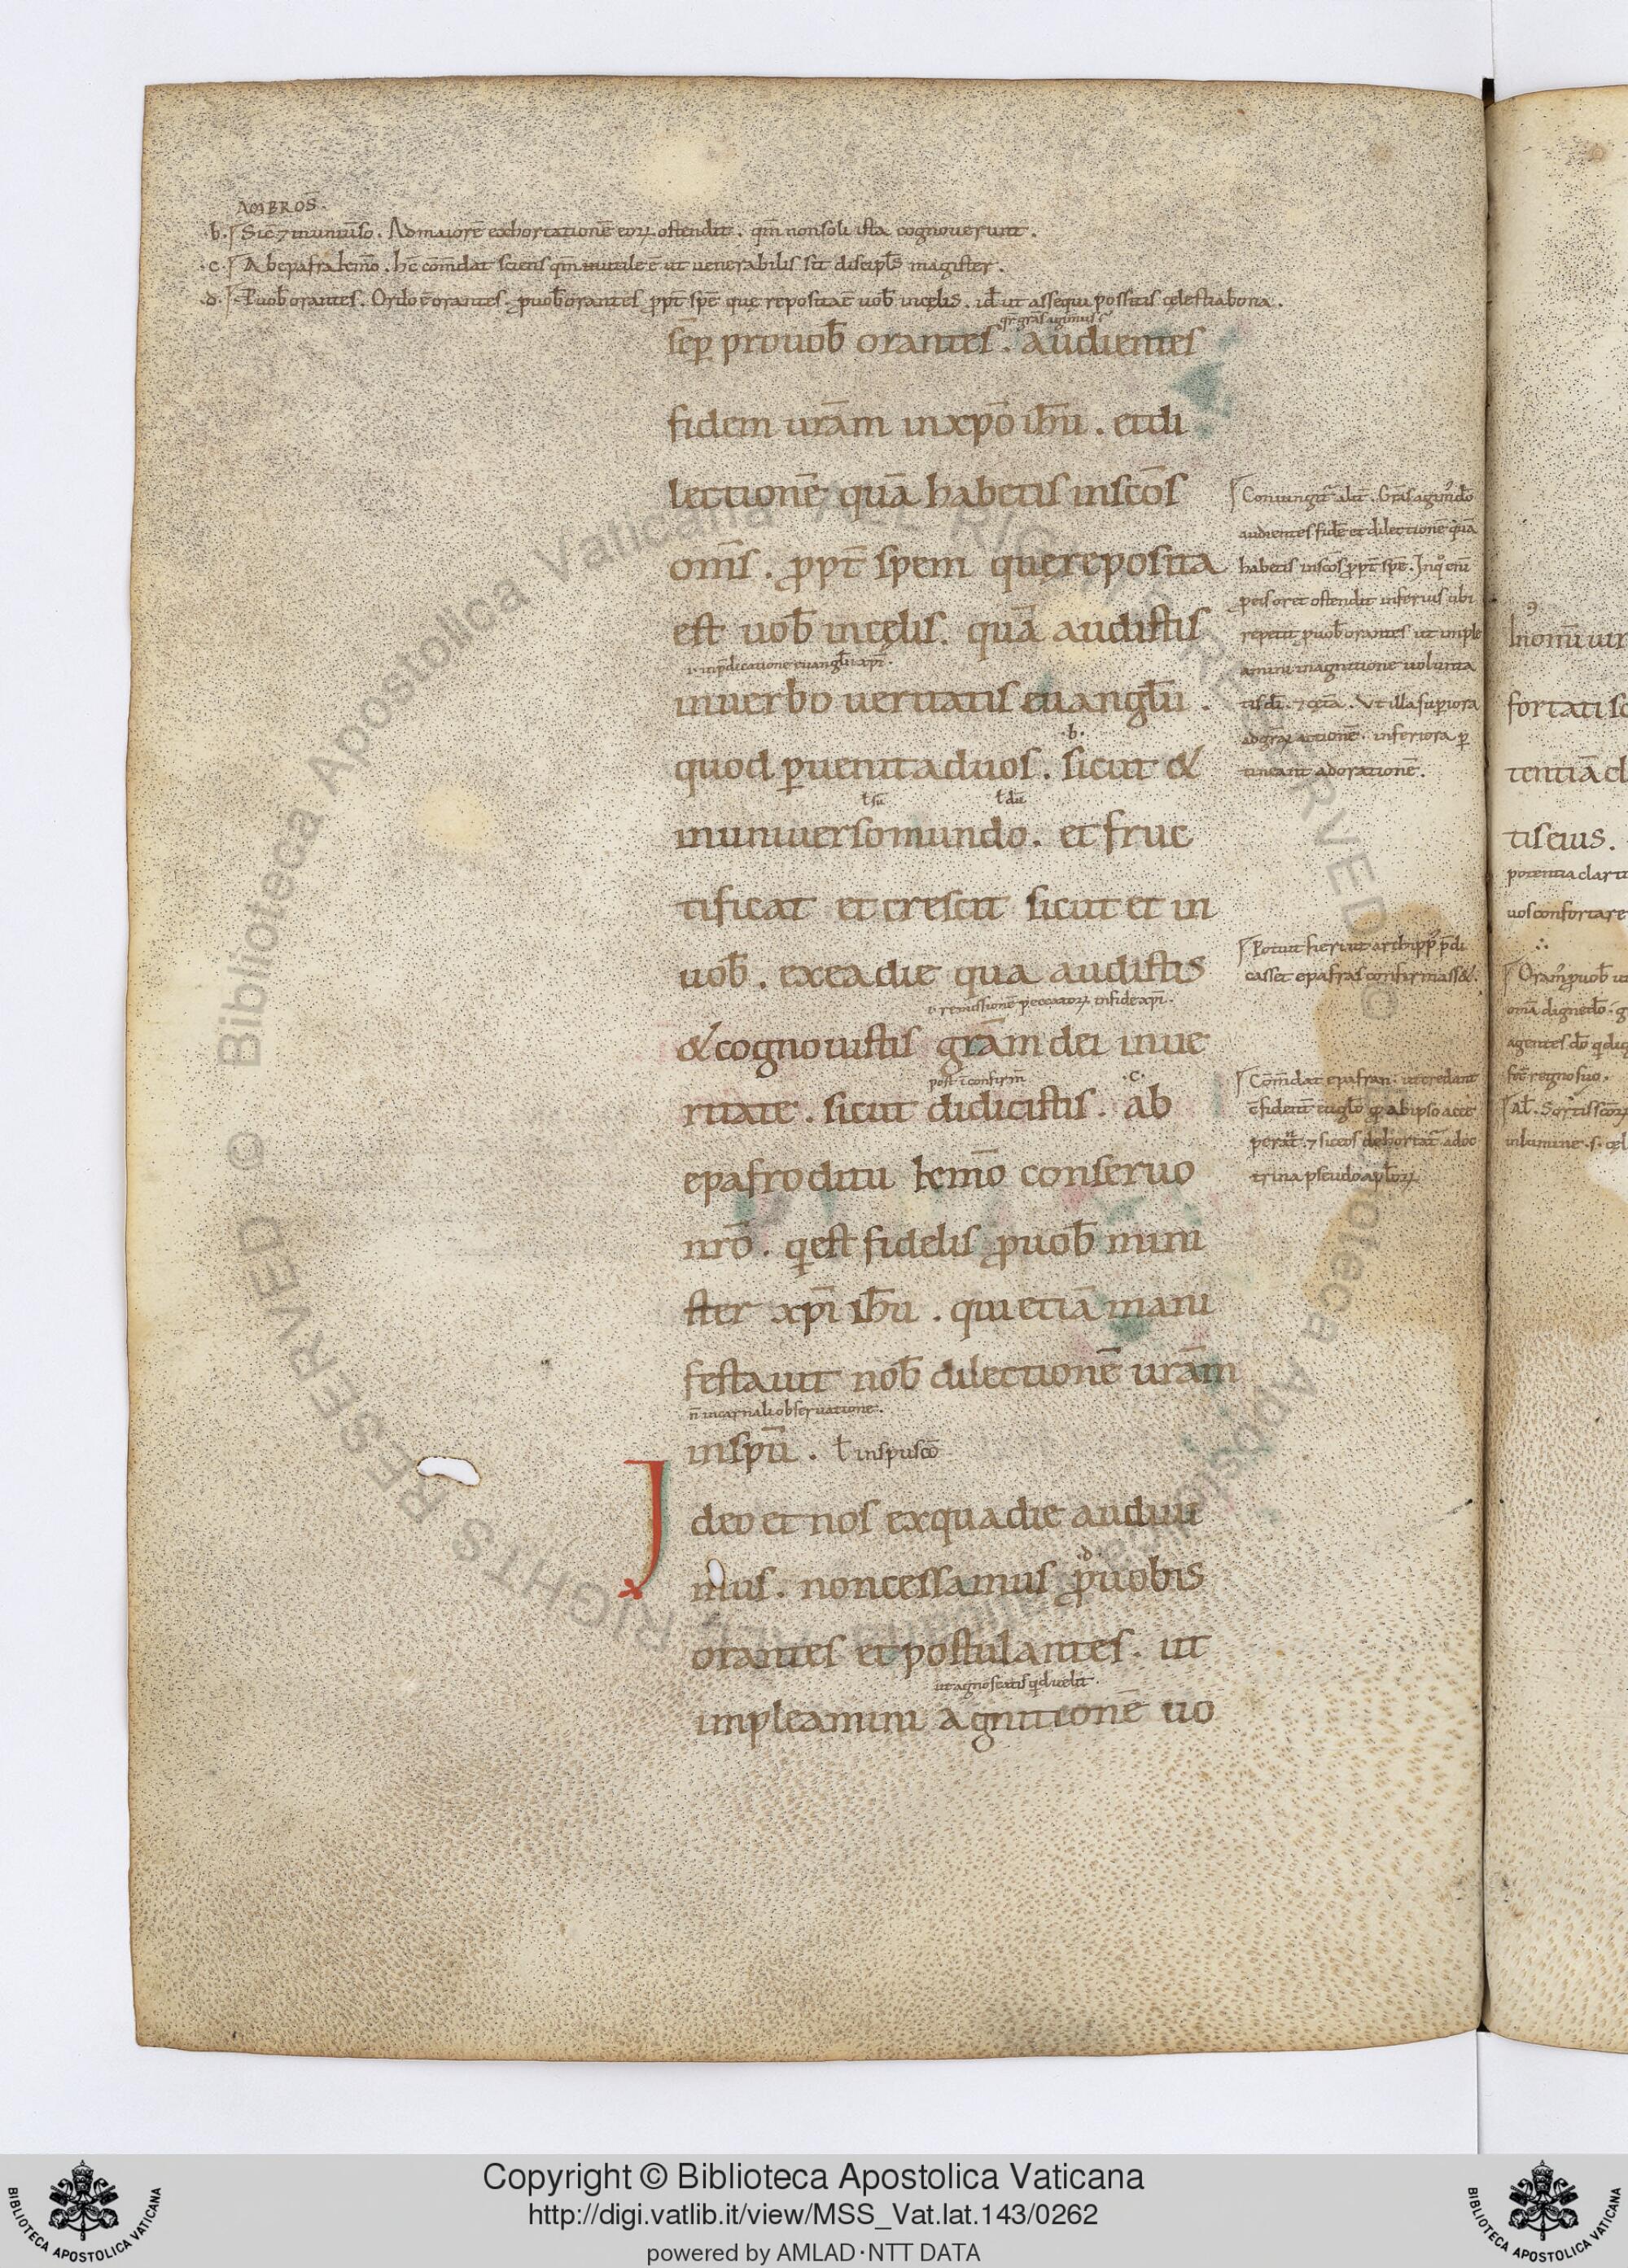 AMBROS.
.b. Sic̄ 7 in uniũso. Ad maiorē exhortationē eoꝝ ostendit. qm̄ non soli ista cognoverunt.
.c. Ab epafra kmo̅. hē com̄dat sciens qm̄ inutile ē ut venerabilis sit discipl̄s magister.
.d. Ꝓ uob̄ orantes. Ordo ē orantes. ꝓ uob̄ orantes ꝓpt̄ spē quę reposita ē uob̄ in cęlis. id ut assequi possitis cęlestia bona.
qr̄ gras̄ agimus
sēp pro uob̄ orantes. audientes
fidem ur̄am in xp̄o ih̄u. et di
lectionē quā habetis in sc̄os
om̄s. ꝓpt̄ spem quę reposita
est uob̄ in cęlis. quā audistis
.i. in p̄dicatione euangl̄ii xp̄i.
in uerbo ueritatis euangl̄ii.
.b.
quod ꝑuenit ad uos. sicut &
ł sū ł dū
in uniuerso mundo. et fruc
tificat et crescit sicut et in
uob̄. ex ea die qua audistis
.i. remissionē peccatoꝝ in fide xp̄i.
& cognouistis gr̄am dei in ue
post ī confirm̄ .c.
ritate. sicut didicistis. ab
epafroditu kmo̅ conseruo
nr̄o. q est fidelis ꝓ uob̄ mini
ster xp̄i ih̄u. qui etiā mani
festauit nob̄ dilectionē ur̄am
n̄ in carnali obseruatione.
in spū. ł in spu scō
Ideo et nos ex qua die audiui
.d.
mus. non cessamus ꝓ uobis
orantes et postulantes. ut
ut agnoscatis qd uelit.
impleamini agnitionē uo
Coniungit̄ alit̄. Gras̄ agim⁹ dō
audientes fidē et dilectionē quā
habetis in sc̄os ꝓpt̄ spē. In q° enī
ꝓ eis oret ostendit inferius ubi
repetit ꝓ uob̄ orantes ut imple
amini in agnitione volunta
tis dī. 7 cęta. Ut illa superiora
ad graꝝ actionē. inferiora ꝑ
tineant ad orationē.
Potuit fieri ut archipp⁹ p̄di
casset epafras confirmass&.
Com̄dat epafran. ut credant
ē fidem euglō q abipso acce
perat̄. 7 sic eos dehortat̄ a doc
trina pseudoapl̄oꝝ
in om̄i uir
fortati sc
tentiā cl
tis eius.
potentia clarit
uos confortare
Oram⁹ ꝓ uob̄ ut
om̄a digne dō. g
agentes dō q dig
fec̄ regno suo.
Al̄. Sortis sc̄oꝝ
in lumine .s. cęl
Copyright © Biblioteca Apostolica Vaticana
http://digi.vatlib.it/view/MSS_Vat.lat.143/0262
powered by AMLAD·NTT DATA
BIBLIOTECA APOSTOLICA VATICANA
BIBLIOTECA APOSTOLICA VATICANA
© Biblioteca Apostolica Vaticana ALL RIGHTS RESERVED